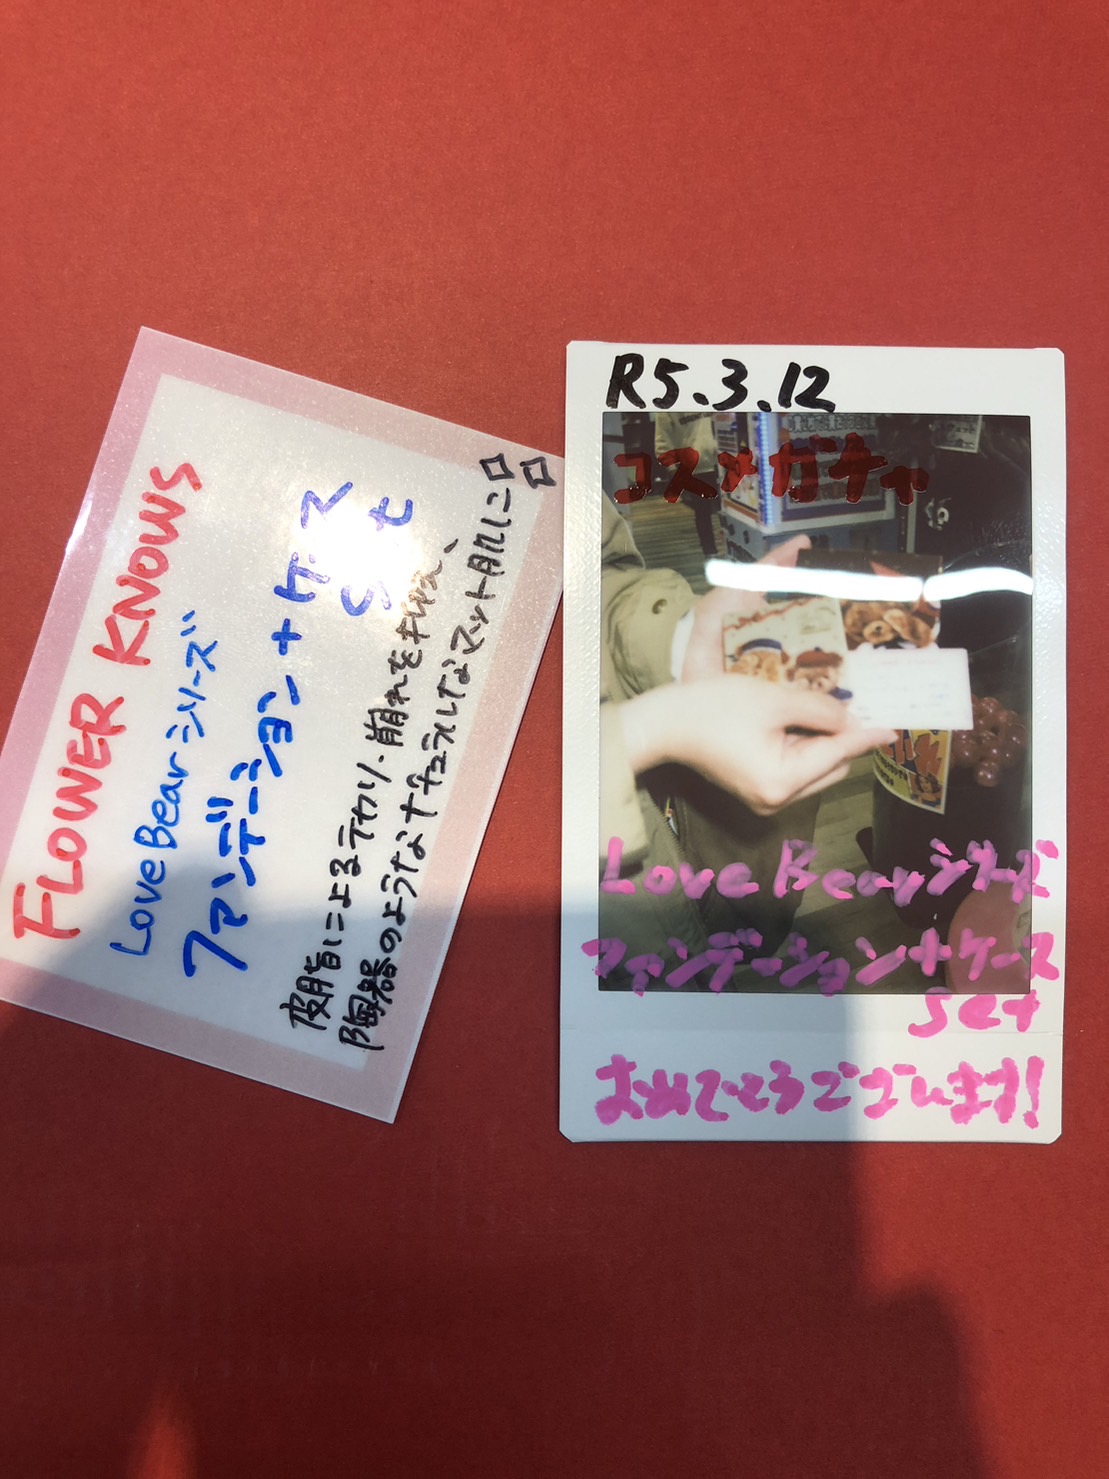 FLOWER KNOWS
Love Bear シリーズ
ファンデーション+ケース
Set
皮脂によるテカリ・崩れを
陶器のようなナチュラルなマット肌に
R5.3.12
コスメガチャ
Love Bearシリーズ
ファンデーション+ケース
set
おめでとうございます!